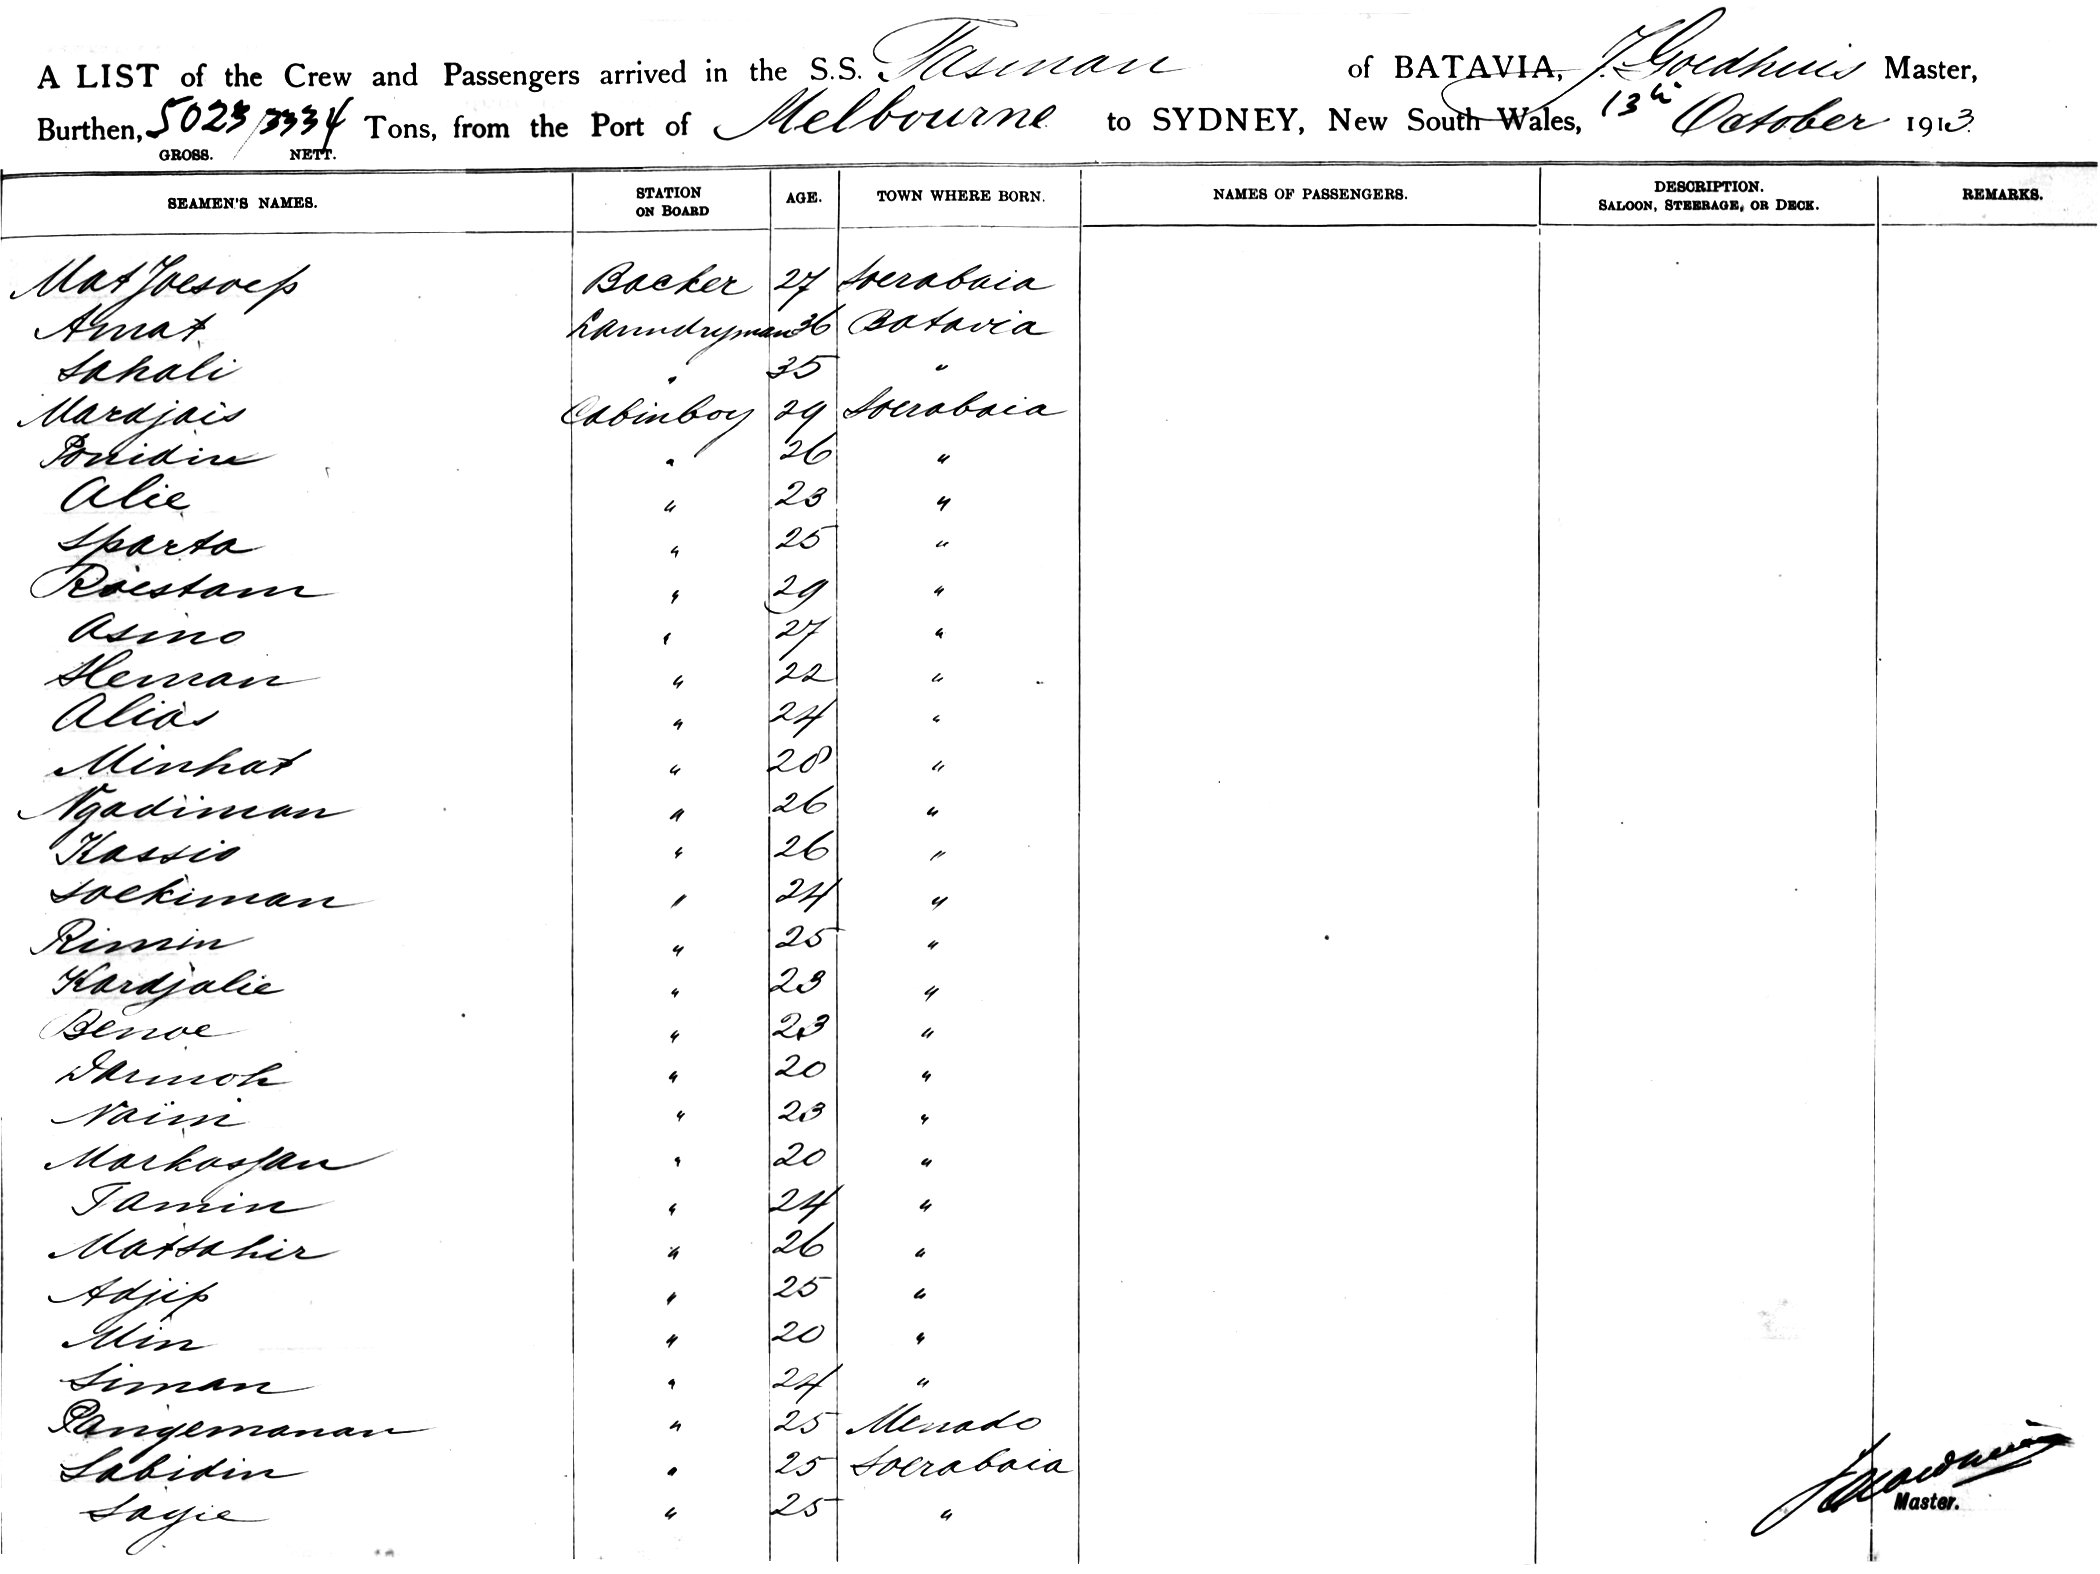 A LIST of the Crew and Passengers arrived in the S.S. Tasman of BATAVIA, J. Goedhuis Master,
Burthen, 5023/3334 Tons, from the Port of Melbourne to SYDNEY, New South Wales, 13th October 1913.
GROSS. NETT.
SEAMEN'S NAMES. STATION ON BOARD AGE. TOWN WHERE BORN. NAMES OF PASSENGERS. DESCRIPTION. SALOON, STEERAGE, OR DECK. REMARKS.
Mat Joesoep Backer 27 Soerabaia
Amat Laundryman 36 Batavia
Sahali " 35 "
Mardjais Cabinboy 29 Soerabaia
Ponidin " 26 "
Alie " 23 "
Sparta " 25 "
Roestam " 29 "
Asino " 27 "
Sleman " 22 "
Alias " 24 "
Minhat " 28 "
Ngadiman " 26 "
Kassio " 26 "
Soekiman " 24 "
Rimin " 25 "
Kardjalie " 23 "
Benoe " 23 "
Darmoh " 20 "
Naim " 23 "
Markassan " 20 "
Tamin " 24 "
Matsahir " 26 "
Adjip " 25 "
Min " 20 "
Siman " 24 "
Pangemanan " 25 Menado
Sabidin " 25 Soerabaia
Sagie " 25 "
J Goedhuis
Master.